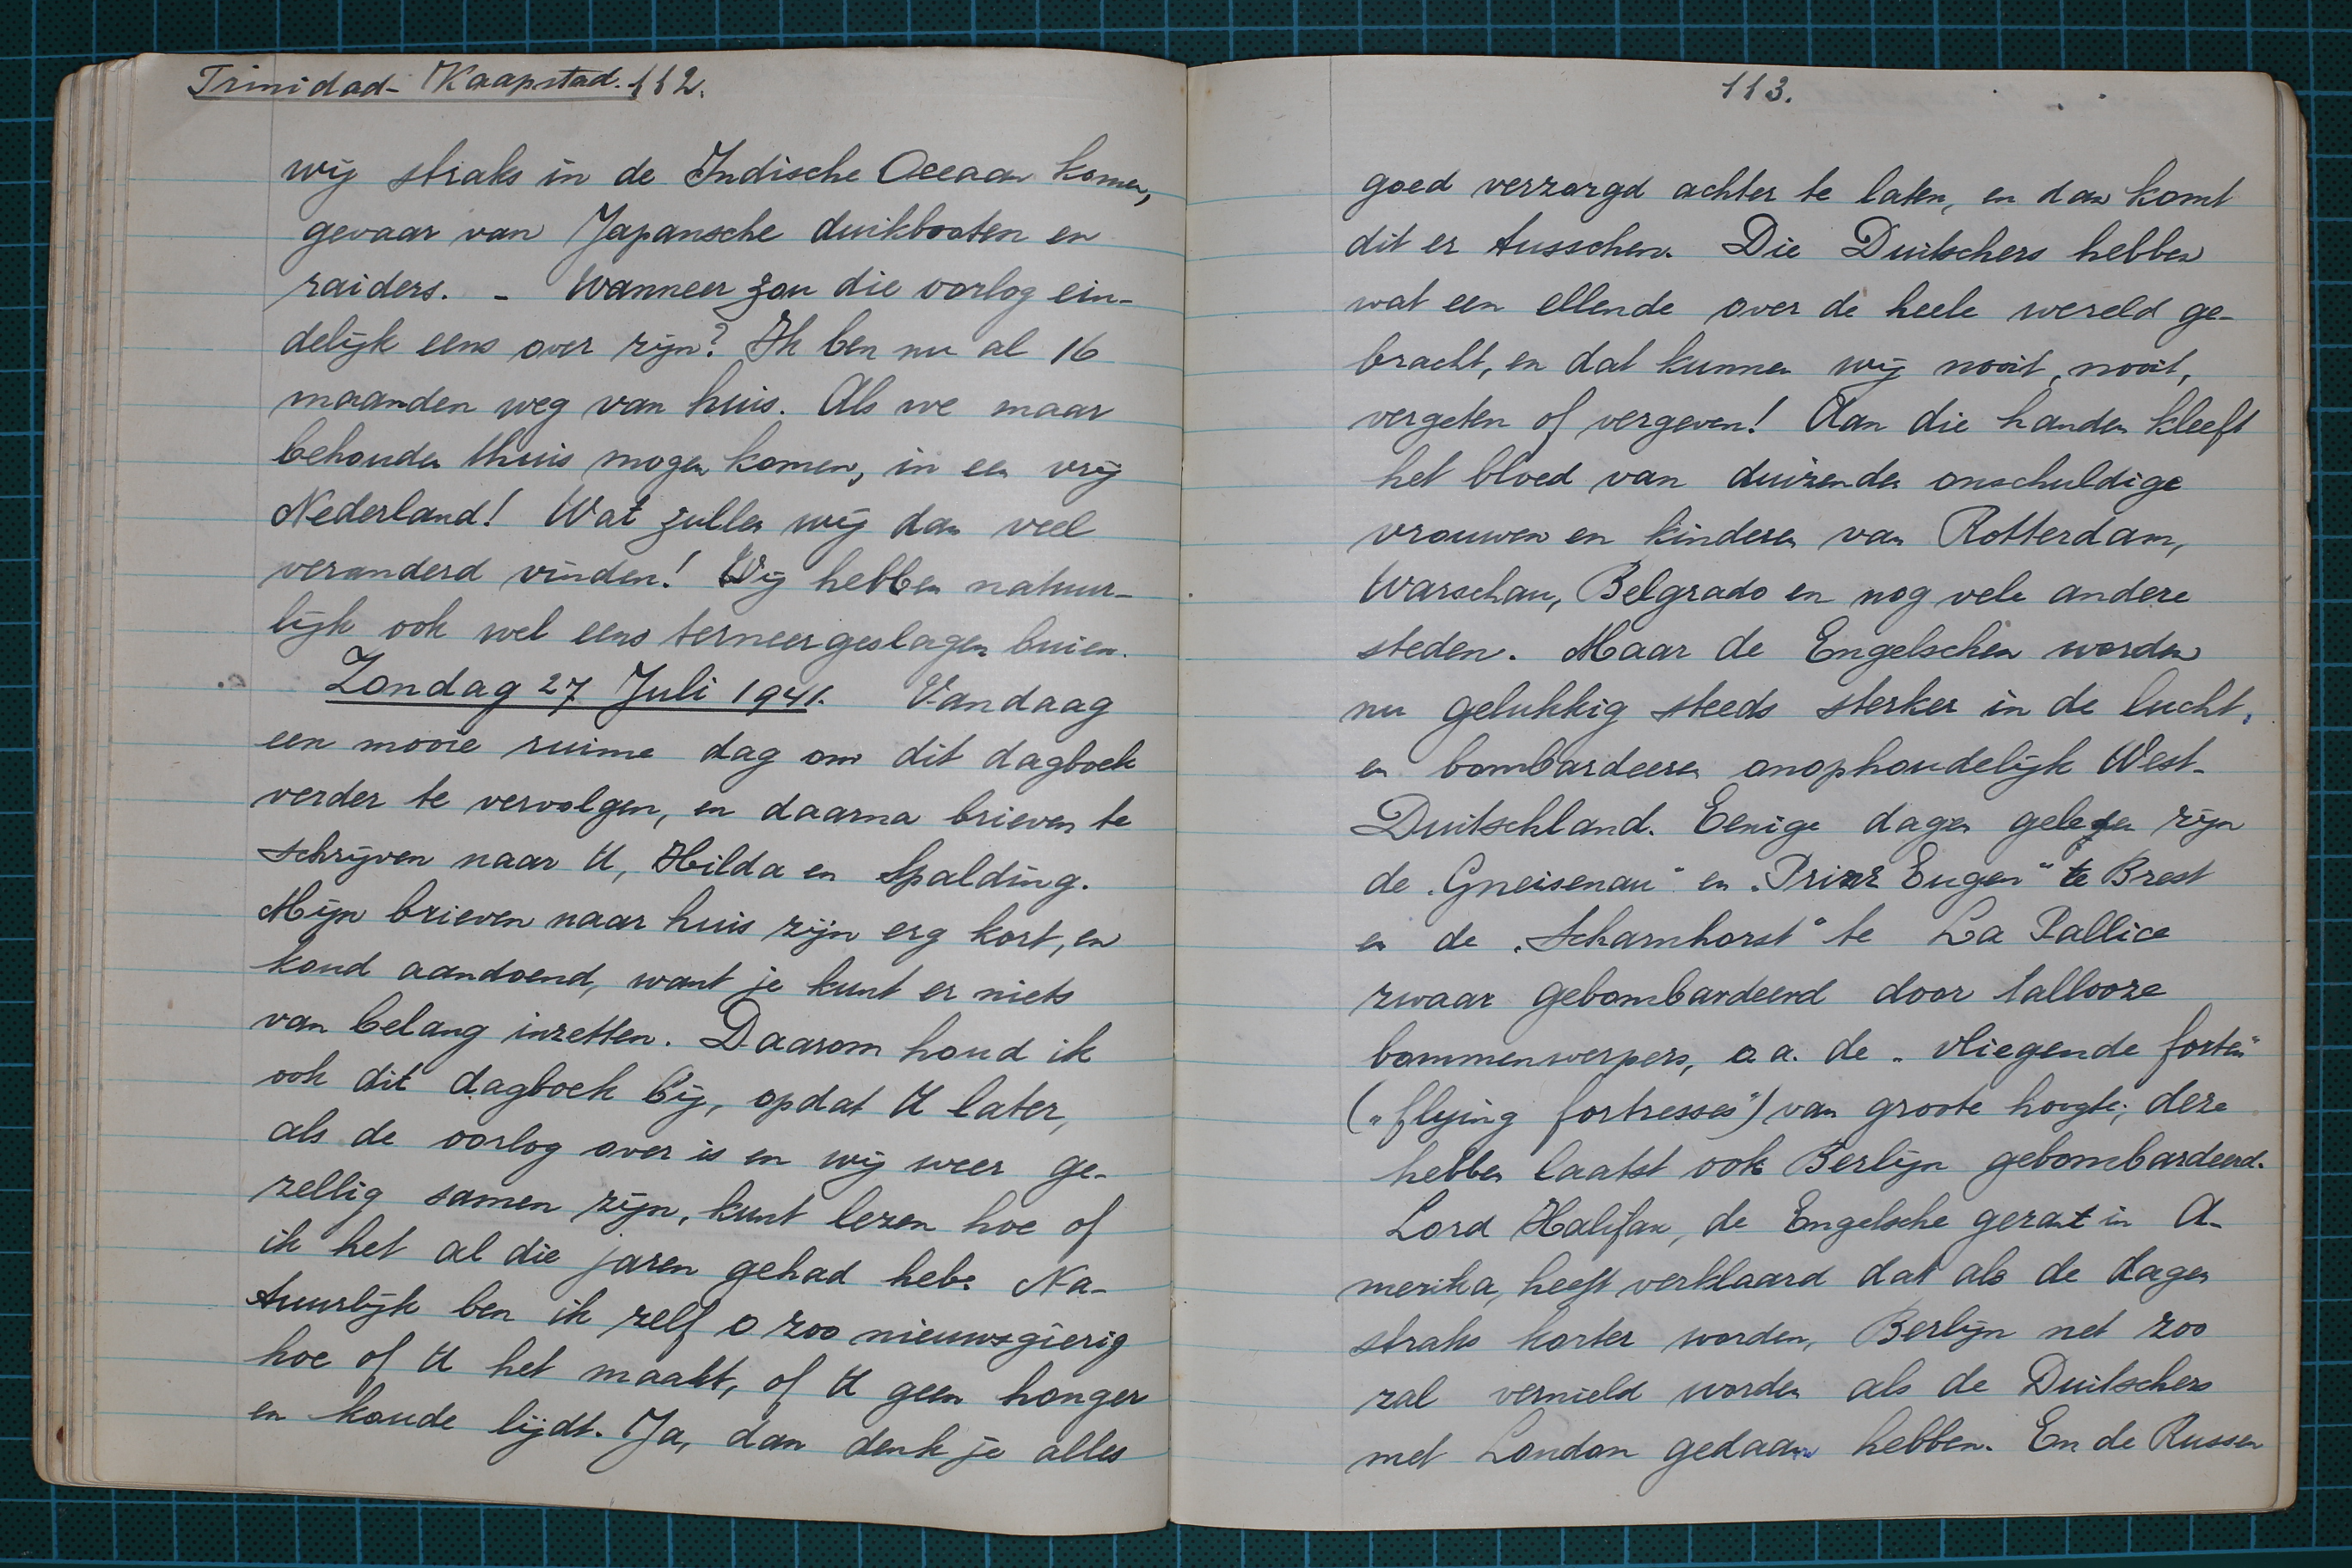 Trinidad - Kaapstad. 112.
wij straks in de Indische Oceaan komen,
gevaar van Japansche duikbooten en
raiders. - Wanneer zou die oorlog ein-
delijk eens over zijn? Ik ben nu al 16
maanden weg van huis. Als we maar
behouden thuis mogen komen, in een vrij
Nederland! Wat zullen wij dan veel
veranderd vinden! Wij hebben natuur-
lijk ook wel eens terneergeslagen buien.
Zondag 27 Juli 1941. Vandaag
een mooie ruime dag om dit dagboek
verder te vervolgen, en daarna brieven te
schrijven naar U, Hilda en Spalding.
Mijn brieven naar huis zijn erg kort, en
koud aandoend, want je kunt er niets
van belang inzetten. Daarom houd ik
ook dit dagboek bij, opdat U later,
als de oorlog over is en wij weer ge-
zellig samen zijn, kunt lezen hoe of
ik het al die jaren gehad heb. Na-
tuurlijk ben ik zelf o zoo nieuwsgierig
hoe of U het maakt, of U geen honger
en koude lijdt. Ja, dan denk je alles
113.
goed verzorgd achter te laten, en dan komt
dit er tusschen. Die Duitschers hebben
wat een ellende over de heele wereld ge-
bracht, en dat kunnen wij nooit, nooit,
vergeten of vergeven! Aan die handen kleeft
het bloed van duizenden onschuldige
vrouwen en kinderen van Rotterdam,
Warschau, Belgrado en nog vele andere
steden. Maar de Engelschen worden
nu gelukkig steeds sterker in de lucht,
en bombardeeren onophoudelijk West-
Duitschland. Eenige dagen geleden zijn
de „Gneisenau" en „Prinz Eugen" te Brest
en de „Scharnhorst" te La Pallice
zwaar gebombardeerd door tallooze
bommenwerpers, o.a. de „vliegende forten"
(„flying fortresses") van groote hoogte; deze
hebben laatst ook Berlijn gebombardeerd.
Lord Halifax, de Engelsche gezant in A-
merika, heeft verklaard dat als de dagen
straks korter worden, Berlijn net zoo
zal vernield worden als de Duitschers
met London gedaan hebben. En de Russen